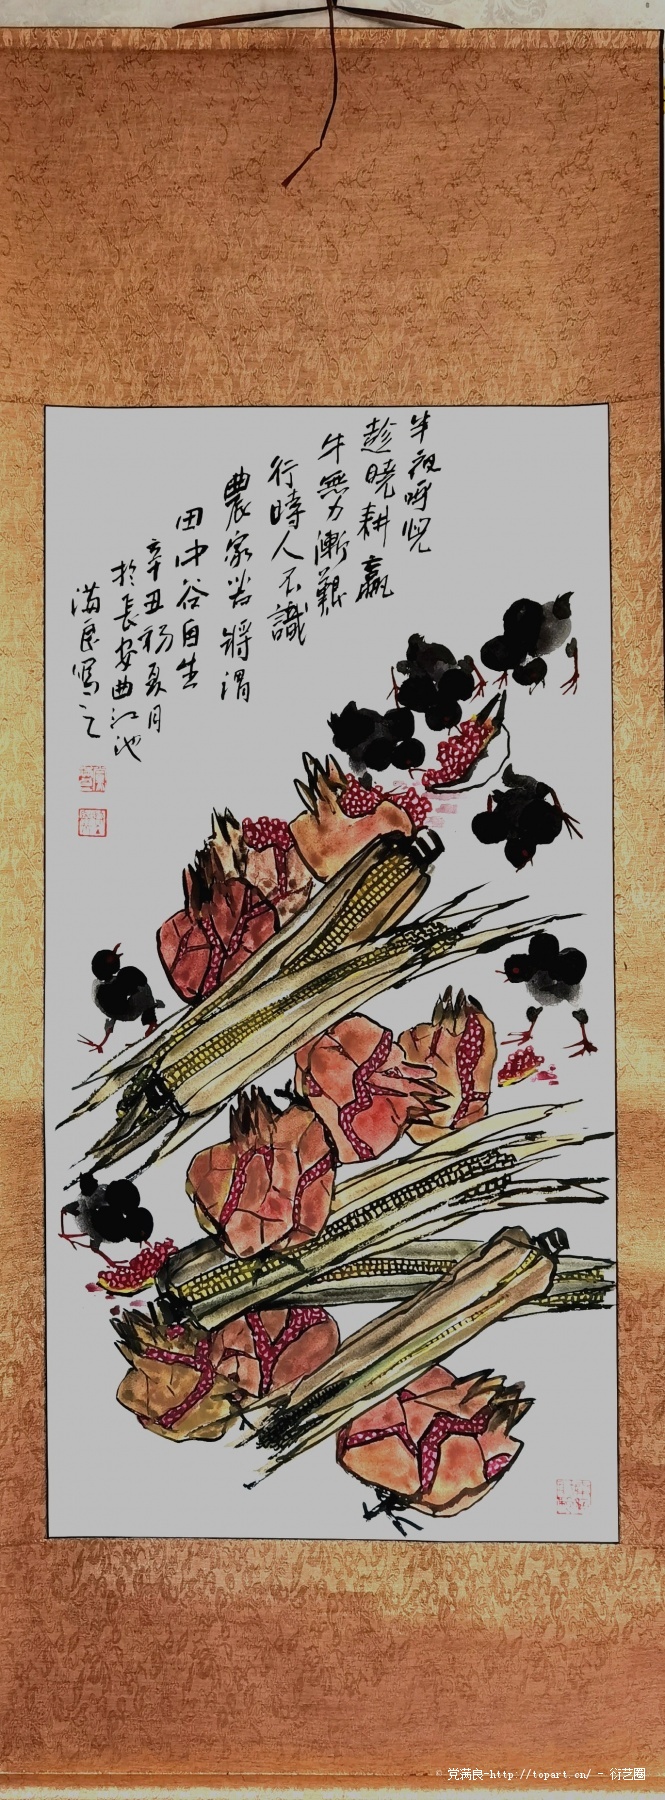 半夜呼兒
趁曉耕羸
牛無力漸艱
行時人不識
農家苦將謂
田中谷自生
辛丑初夏月
於長安曲江池
滿良寫之
© 党满良-http://topart.cn/ - 衍艺圈